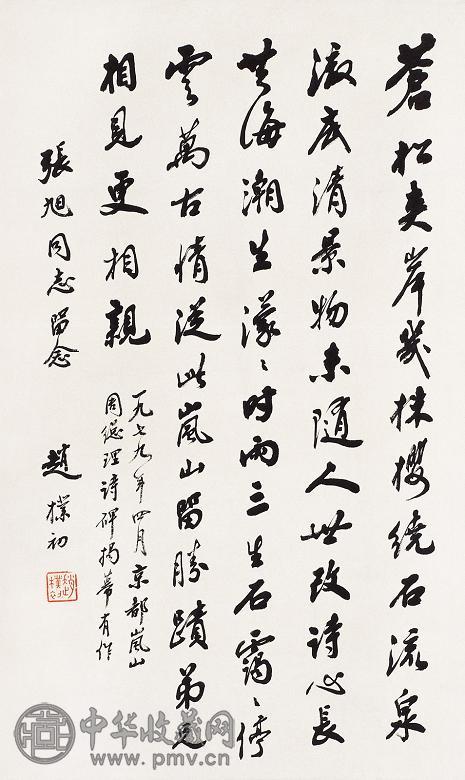 蒼松夾岸幾株櫻繞石流泉
澈底清景物未隨人世改詩心長
共海潮生濛〻时雨三生石靄〻停
雲萬古情從此嵐山留勝蹟弟兄
相見更相親
一九七九年四月京都嵐山
周總理詩碑揭幕有作
張旭同志留念
趙樸初
中华收藏网
www.pmv.cn